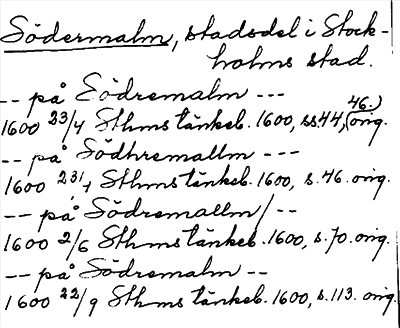 Södermalm, stadsdel i Stock-
holms stad.
-- på Södremalm ---
1600 23/4 Sthms tänkeb. 1600, ss. 44, (46.) orig.
-- på Södhremallm ---
1600 23/4 Sthms tänkeb. 1600, s. 46. orig.
-- på Södremallm/--
1600 2/6 Sthms tänkeb. 1600, s. 70. orig.
-- på Södremalm --
1600 22/9 Sthms tänkeb. 1600, s. 113. orig.